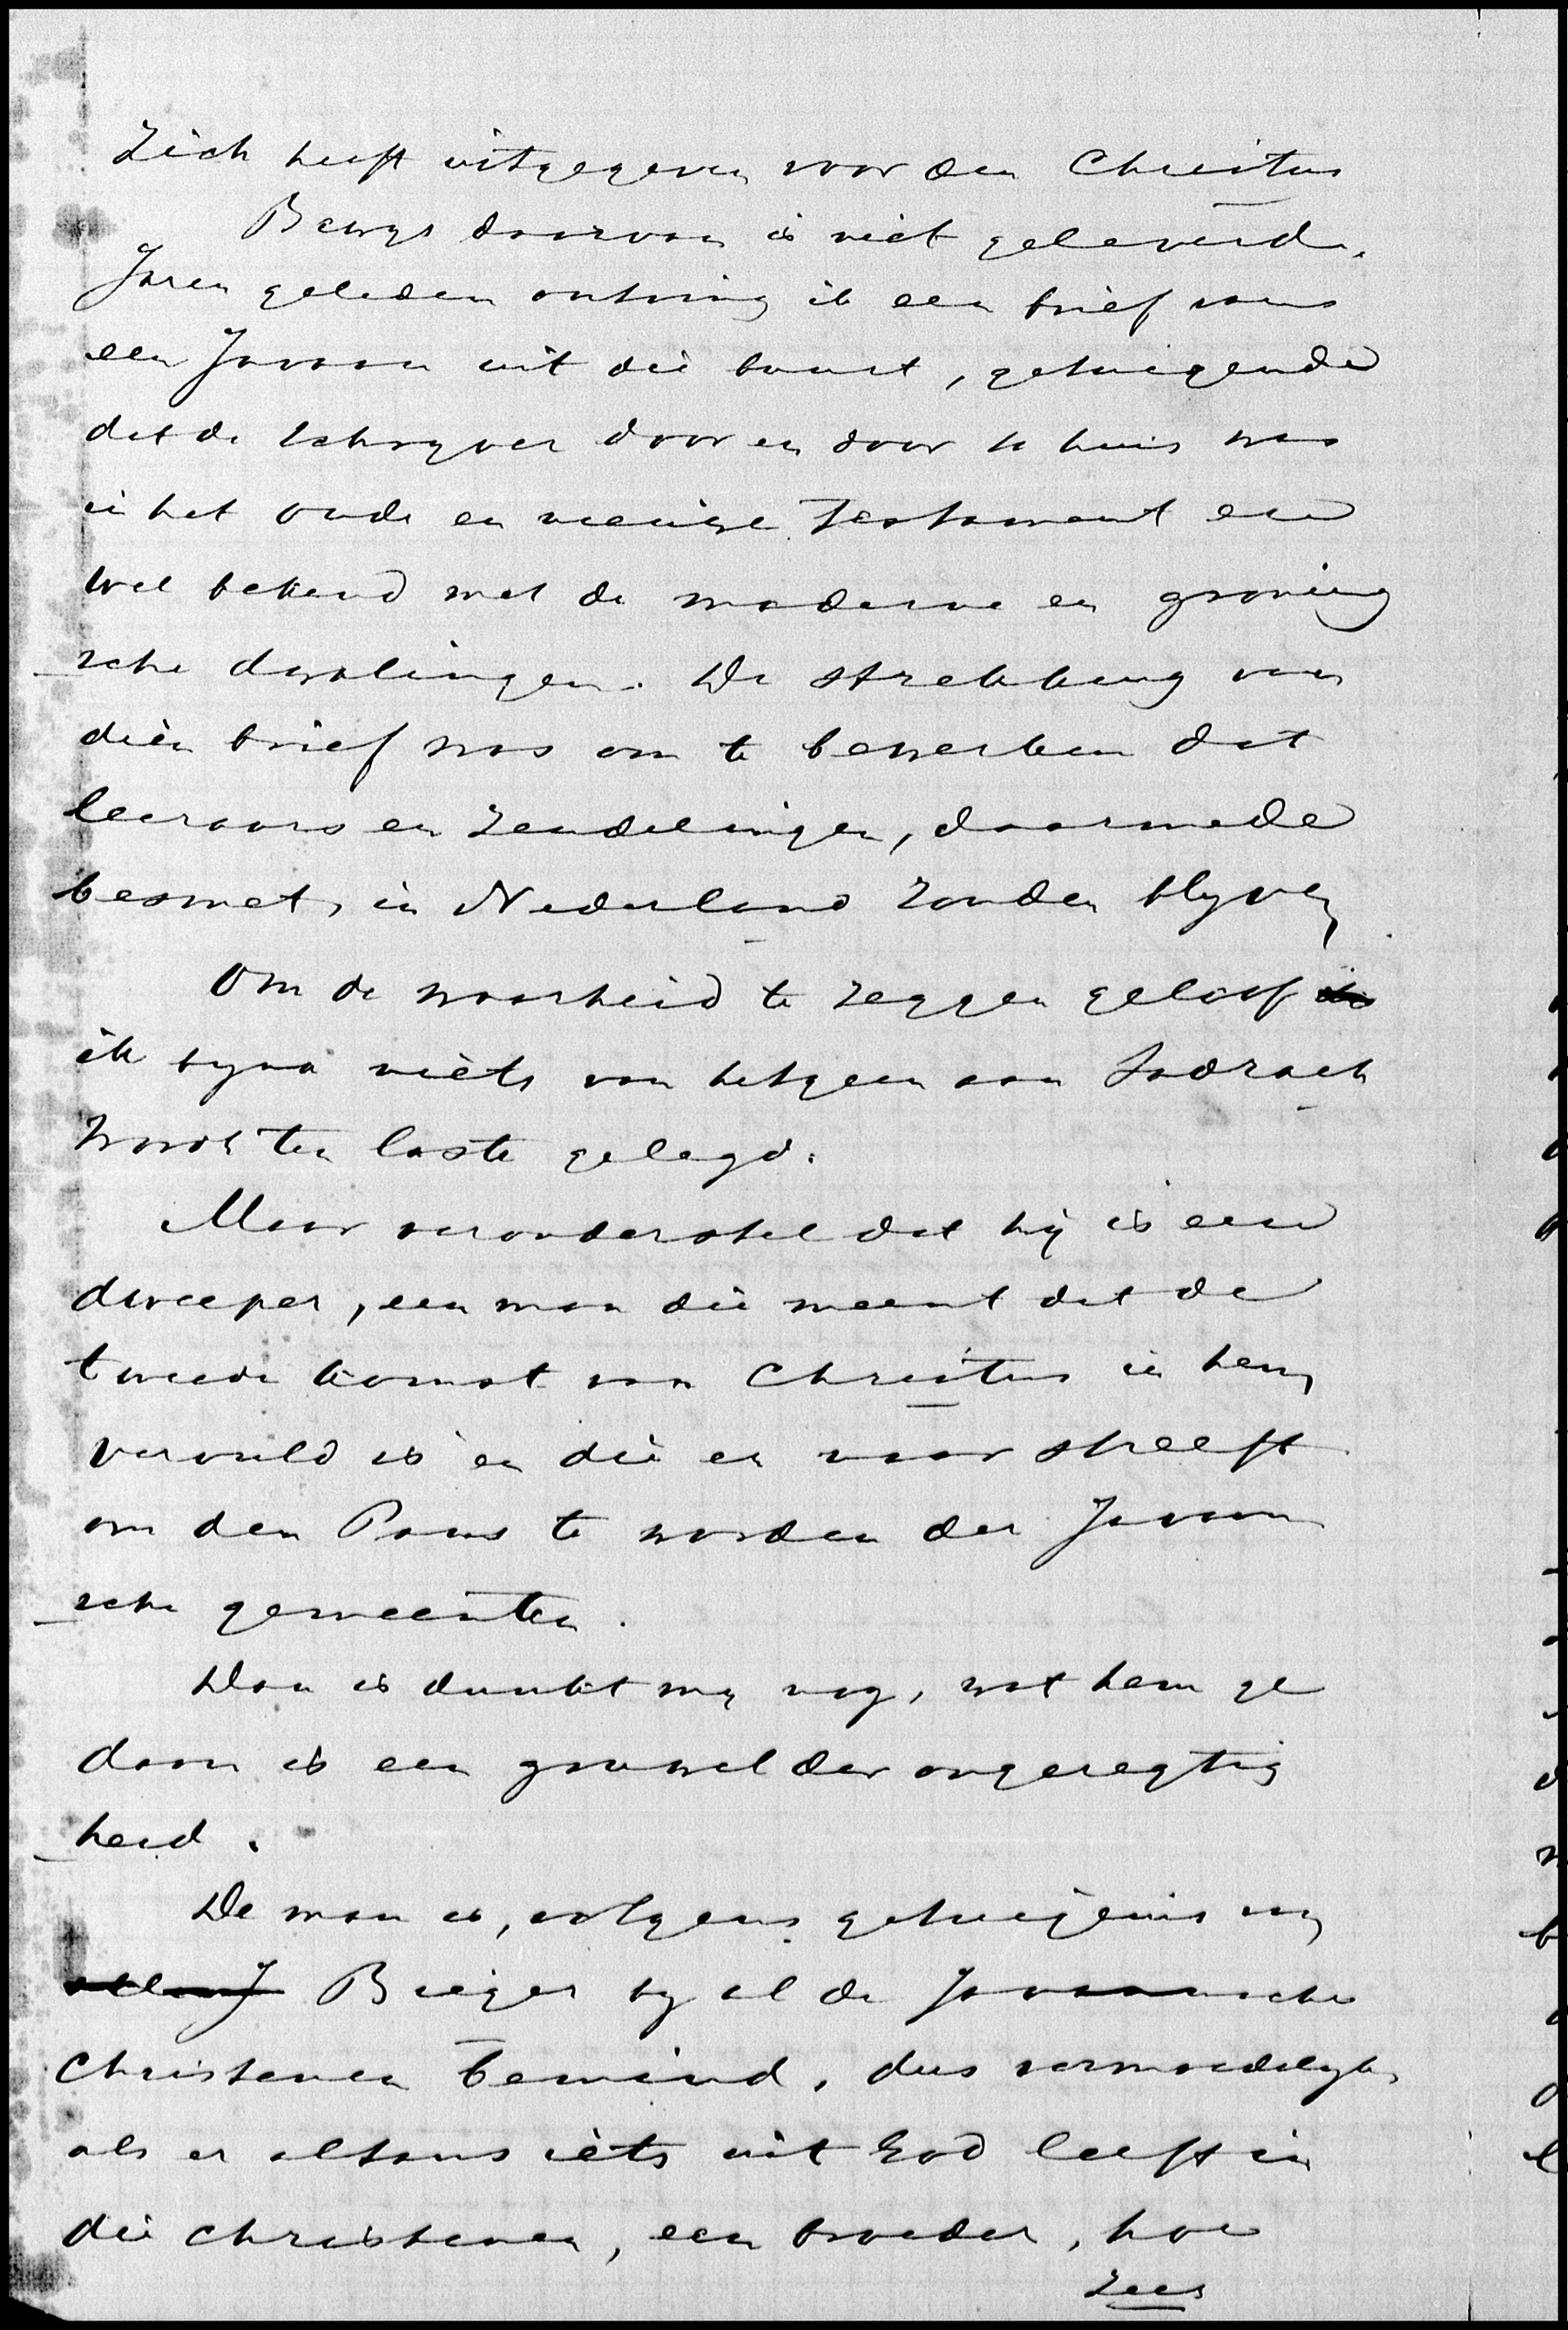 Zich heeft uitgegeven voor den Christus
Bewys daarvan is niet geleverd.
Jaren geleden ontving ik een brief van
een Javaan uit die buurt, getuigende
dat de schryver door en door te huis was
in het oude en nieuwe Testament en
wel bekend met de moderne en groning
sche dwalingen. De strekking van
dien brief was om te bewerken dat
leeraars en zendelingen, daarmede
besmet, in Nederland zouden blyven
Om de waarheid te zeggen geloof
ik byna niets van hetgeen aan Sadrach
wordt ten laste gelegd.
Maar veronderstel dat hij is een
dweeper, een man die meent dat de
tweede komst van Christus in hem
vervuld is en die er naar streeft
om den Paus te worden der Javaan
sche gemeenten.
Dan is dunkt my nog, wat hem ge
daan is een gruwel der ongeregtig
heid.
De man is, volgens getuigenis van
Bieger by al de Javaansche
Christenen bemind, dus vermoedelyk,
als er althans iets uit God leeft in
die christenen, een broeder, hoe
zeer